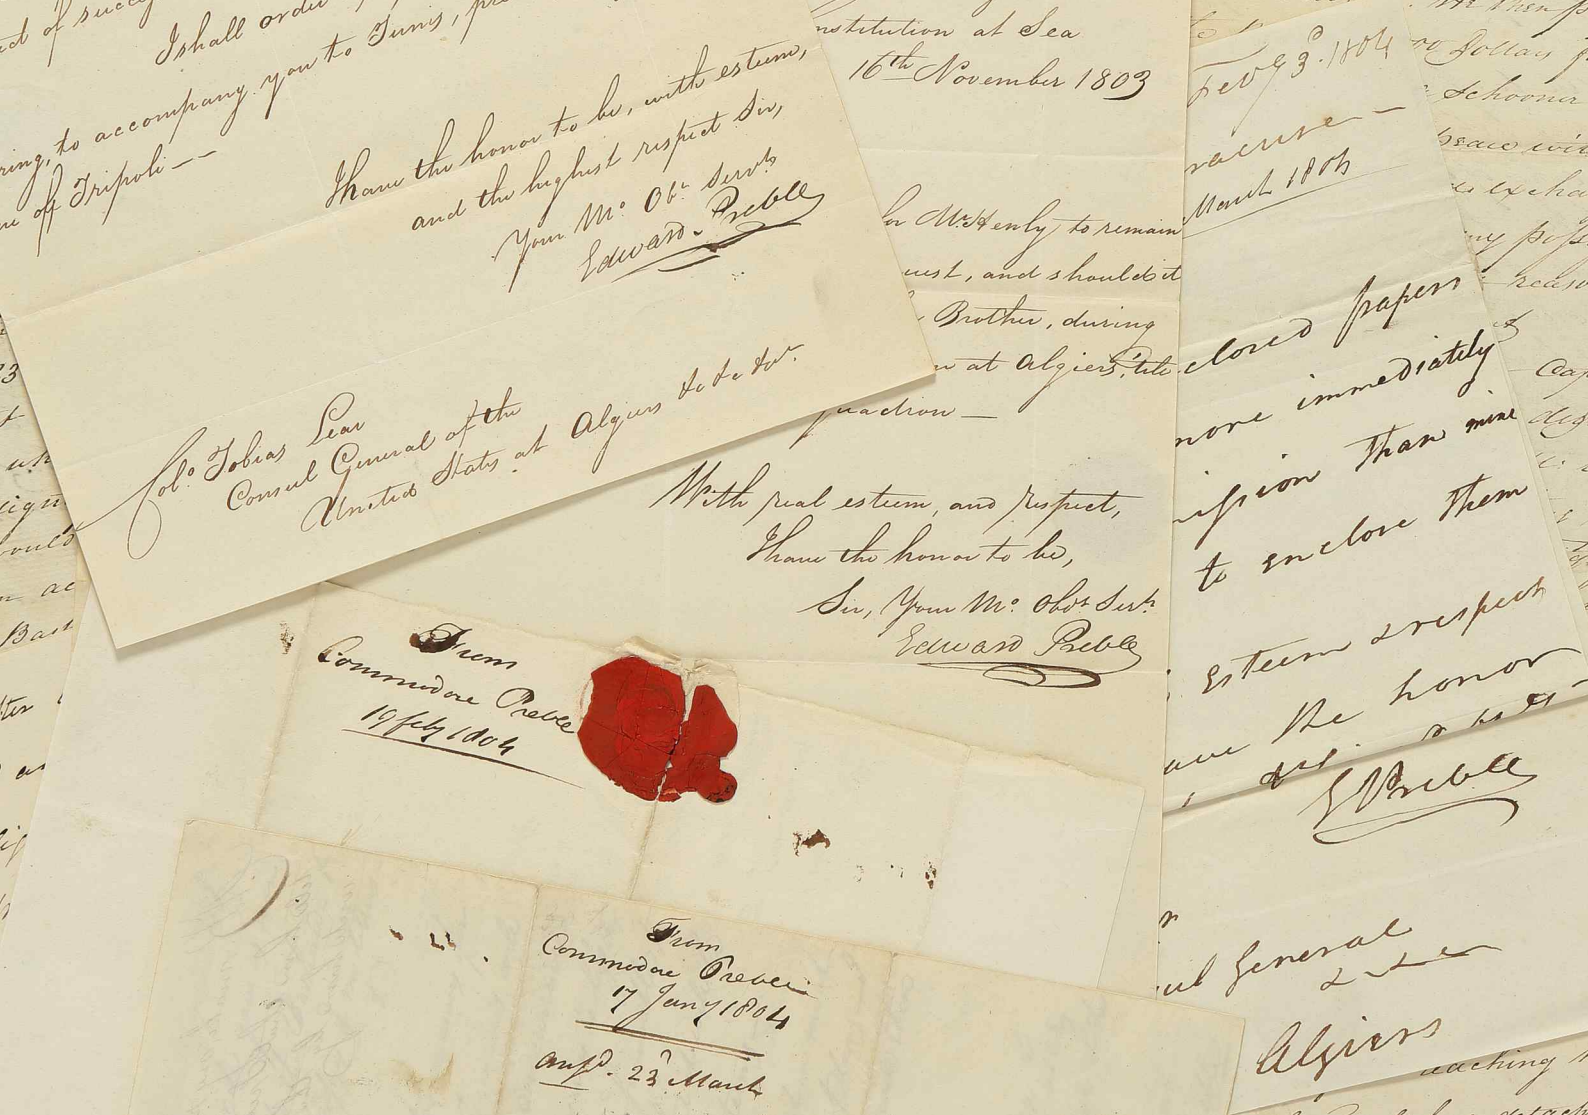 I shall order
ring, to accompany you to Tunis,
of Tripoli --
I have the honor to be, with esteem,
and the highest respect Sir,
Your Mo Obt Servt
Edward Preble
Colo Tobias Lear
Consul General of the
United States at Algiers &c &c &cr.
nstitution at Sea
16th November 1803
for Mr. Henly to remain
uest, and should it
Brother, during
at Algiers, tile
quadron —
With real esteem, and respect,
I have the honor to be,
Sir, Your Mo Obdt Servt
Edward Preble
From
Commodore Preble
19 feby 1804
From
Commodore Preble
17 Jany 1804
ansd. 23d March
Feby 3d. 1804
racuse —
March 1804
closed papers
more immediately
ission than mine
to enclose them
esteem & respect
ave the honor
E Preble
ul General
&c &c &c
Algiers
Dollars
Schooner
peace wit
excha
my poss
reaso
Cap
eaching